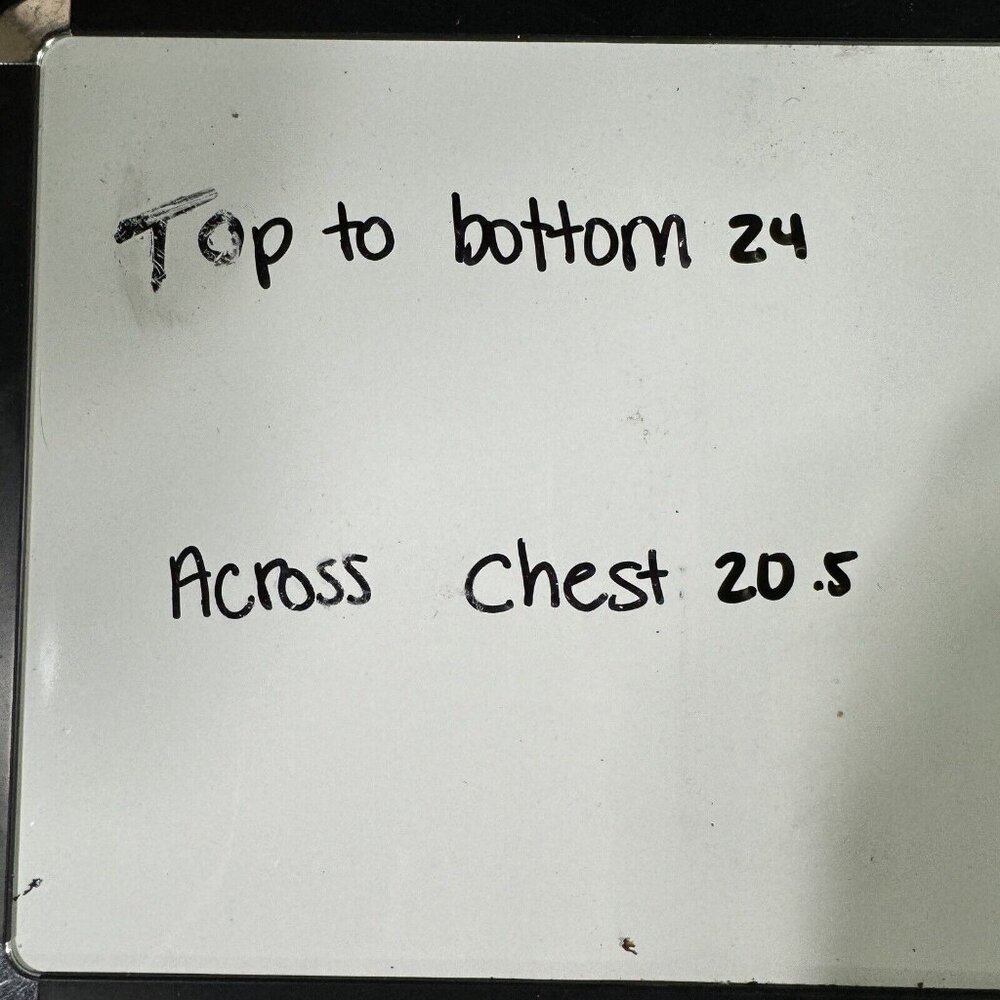 Top to bottom 24
Across Chest 20.5